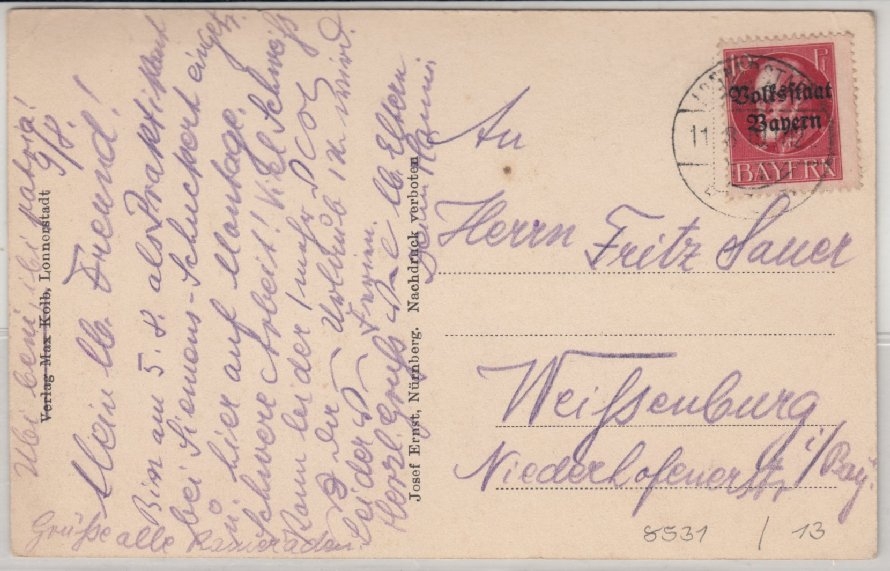 Ubi bene, ibi patria!
9/8.
Mein lb. Freund!
Bin am 5. 8. als Praktikant
bei Siemens-Schuckert einget.
u. hier auf Montage.
Schwere Arbeit! Viel Schweiß
Kann leider nicht
zu Dir Urlaub in
leider Ferien.
Herzl. Gruß lb. Eltern
Dein
Grüße alle Kameraden.
Verlag Max Kolb, Lonnerstadt
Josef Ernst, Nürnberg. Nachdruck verboten
10 Pf
Volksstaat
Bayern
BAYERN
An
Herrn Fritz Sauer
Weißenburg
i/Bay.
Niederhofenerstr.
8531 / 13